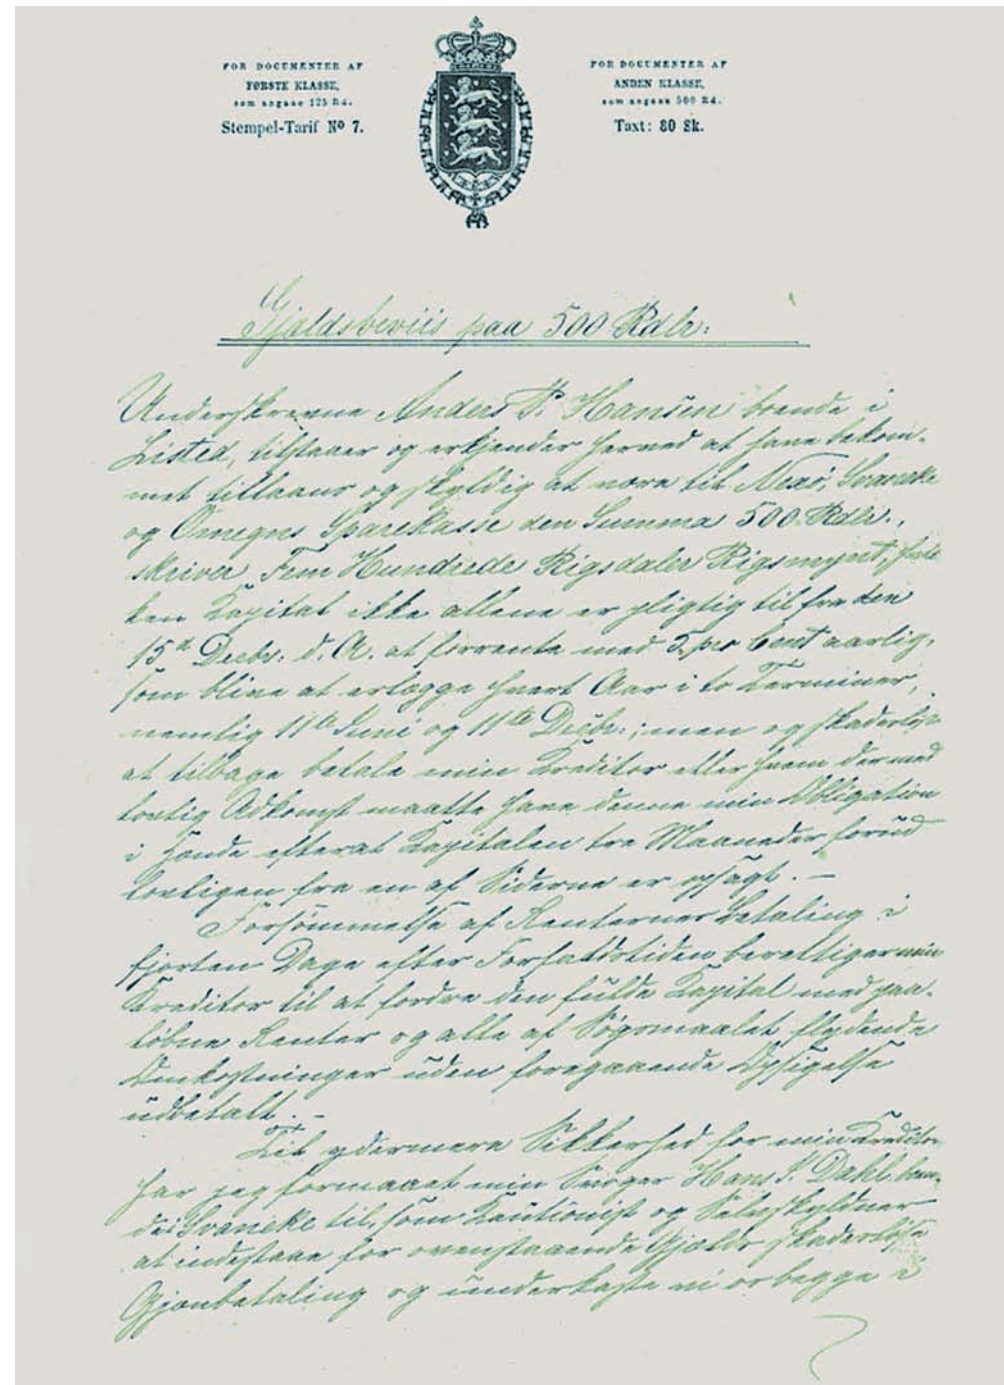 FOR DOCUMENTER AF
FØRSTE KLASSE,
som angaae 125 Rd.
Stempel-Tarif No 7.
FOR DOCUMENTER AF
ANDEN KLASSE,
som angaae 500 Rd.
Taxt: 80 Sk.
Gjældsbeviis paa 500 Rdlr:
Underskrevne Anders P. Hansen boende i
Listed, tilstaaer og erkjender herved at have bekom-
met tillaans og skyldig at være til Nexø, Svaneke
og Omegns Sparekasse den Summa 500 Rdlr.,
skriver Fem Hundrede Rigsdaler Rigsmynt, hvil
ken Kapital ikke allene er pligtig til fra den
15de Decbr. d. A. at forrente med 5 pro Cent aarlig,
som blive at erlægge hvert Aar i to Terminer,
nemlig 11te Juni og 11te Decbr.; men og skadesløs
at tilbage betale min Kreditor eller hvem der med
lovlig Adkomst maatte have denne min Obligation
i Hænde efterat Kapitalen tre Maaneder forud
lovligen fra en af Siderne er opsagt. —
Forsømmelse af Renternes Betaling i
fjorten Dage efter Forfaldstiden berettiger min
Kreditor til at fordre den fulde Kapital med paa-
løbne Renter og alle af Søgsmaalet flydende
Omkostninger uden foregaaende Opsigelse
udbetalt. —
Til ydermere Sikkerhed for min Kreditor
har jeg formaaet min Svoger Hans P. Dahl boen-
de i Svaneke til, som Kautionist og Selvskyldner
at indestaae for ovenstaaende Gjælds skadesløse
Gjenbetaling og underkaste vi os begge i